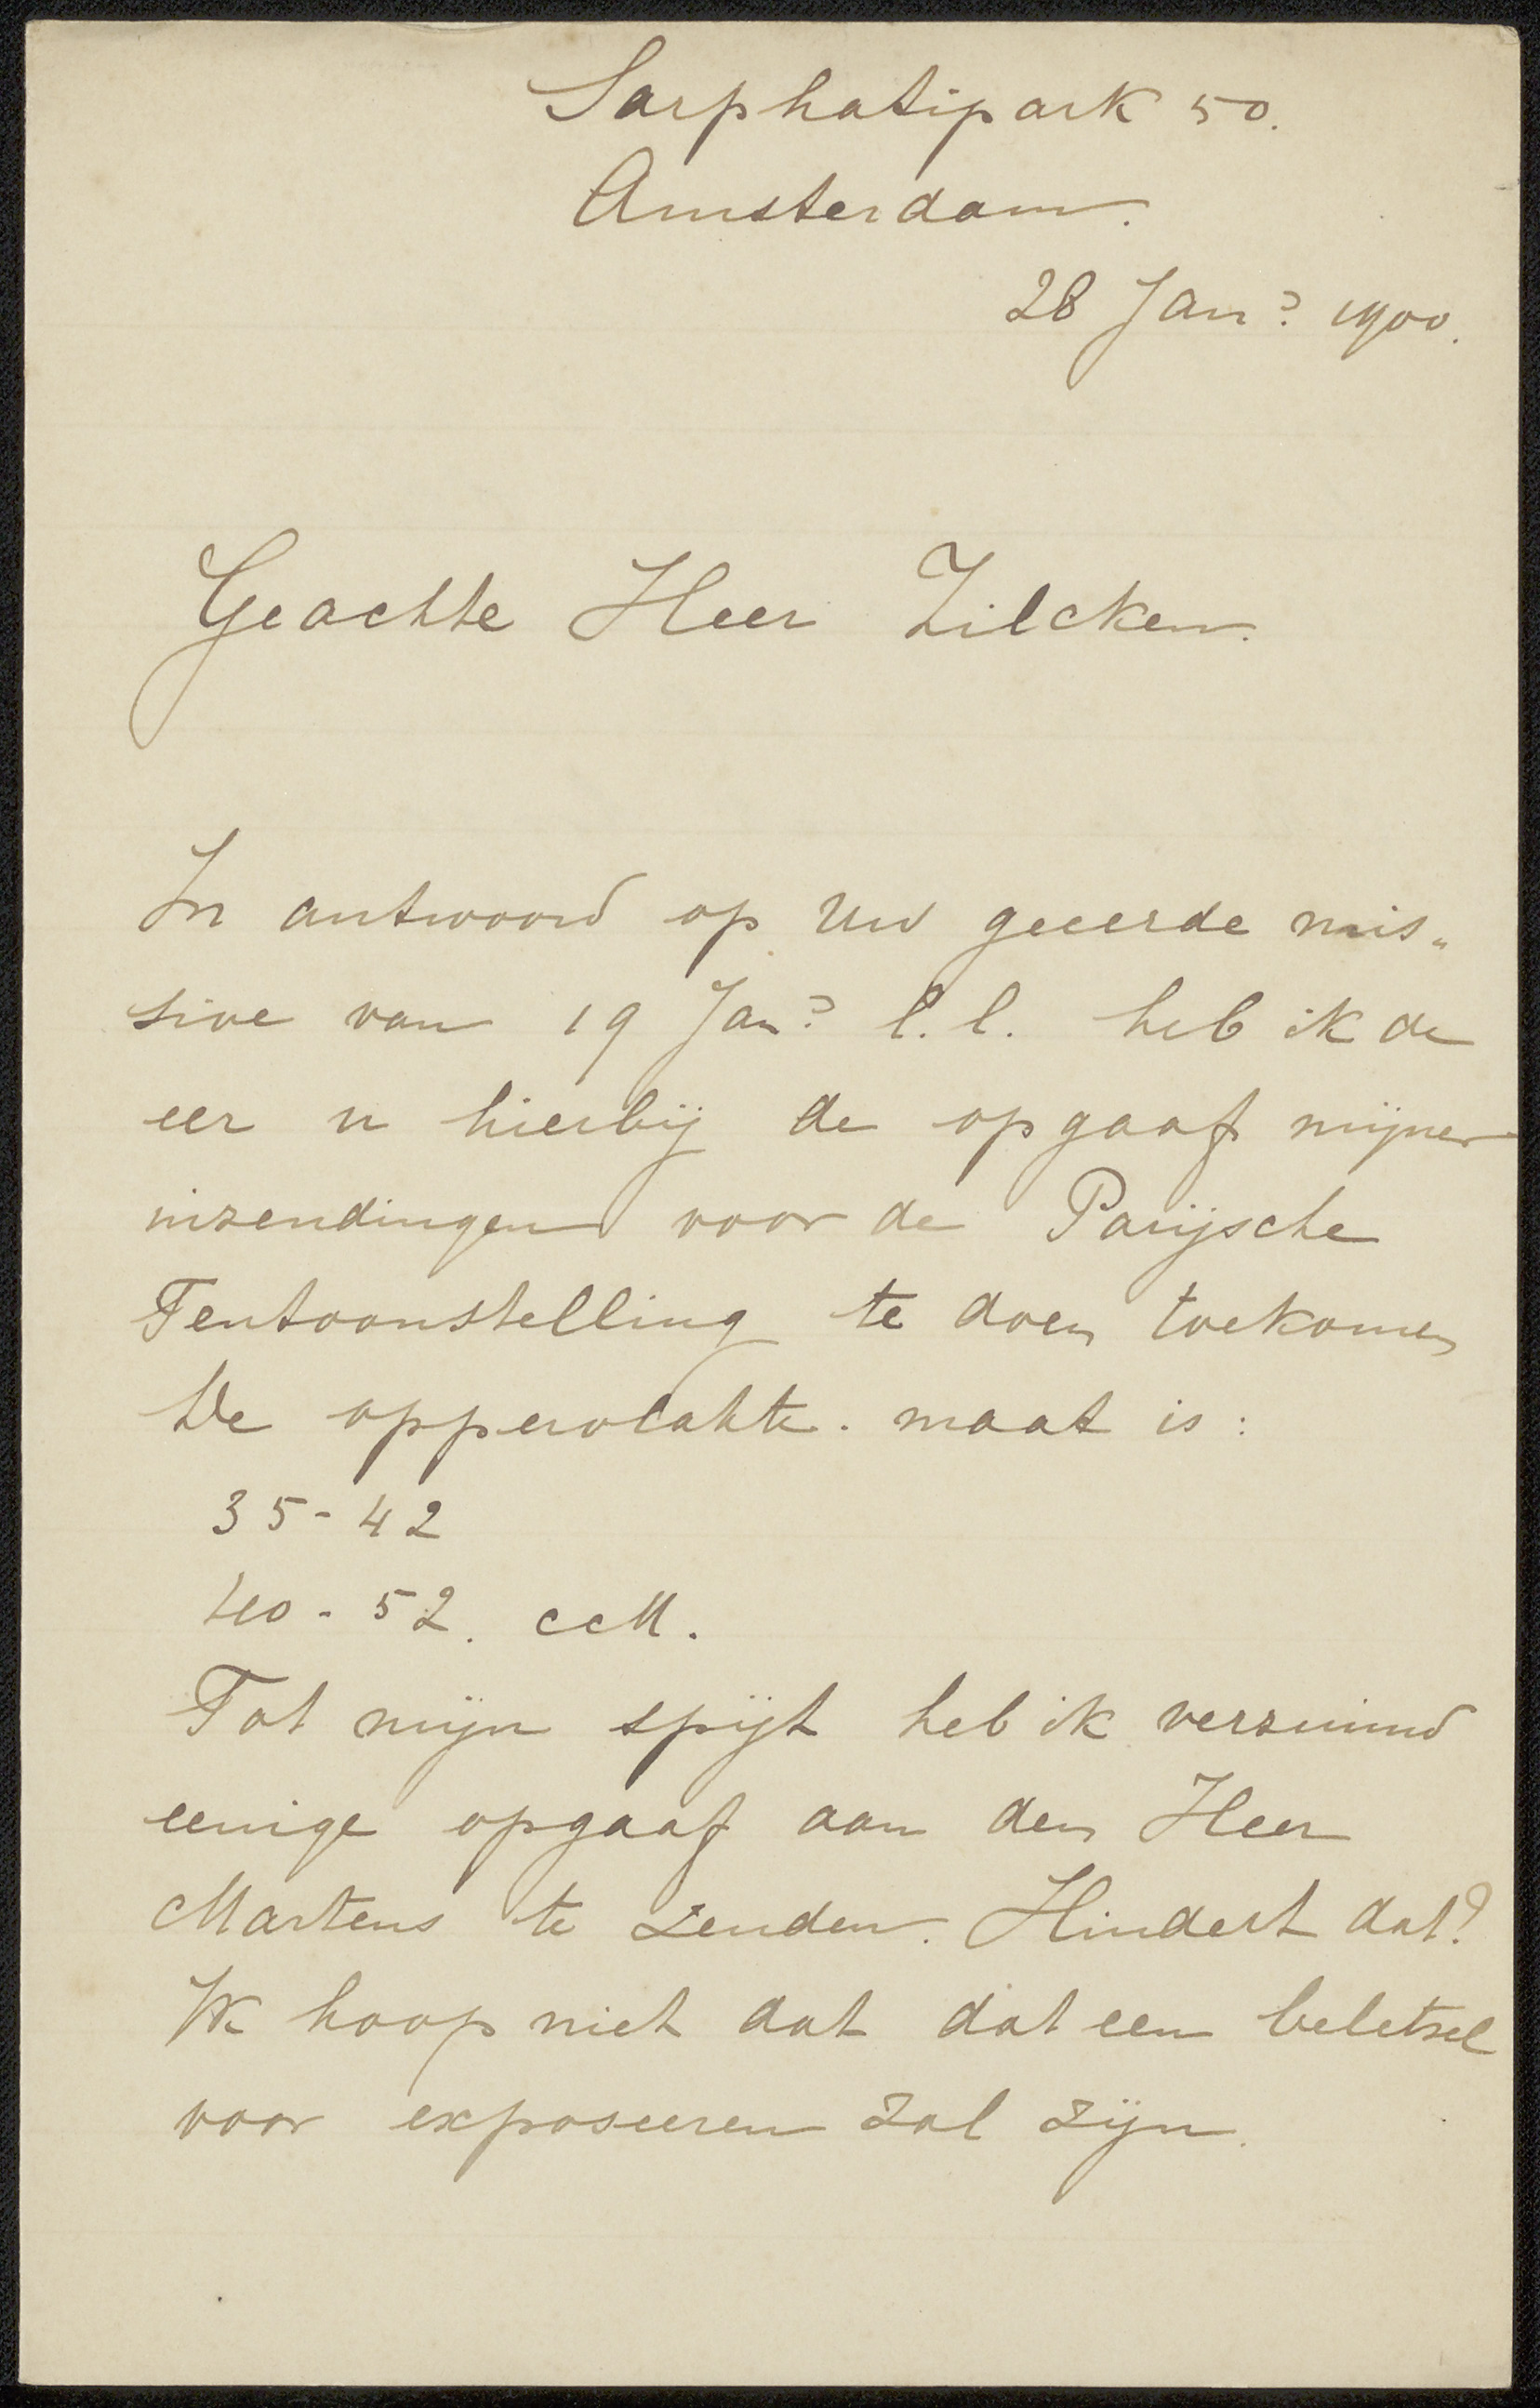 Sarphatipark 50.
Amsterdam.
28 Jan? 1900.
Geachte Heer Zilcken.
In antwoord op Uw geeerde mis„
sive van 19 Jan? l.l. heb ik de
eer u hierbij de opgaaf mijner
inzendingen voor de Parijsche
Tentoonstelling te doen toekomen
De oppervlakte. maat is:
35-42
40-52. ccM.
Tot mijn spijt heb ik verzuimd
eenige opgaaf aan den Heer
Martens te zenden. Hindert dat?
Ik hoop niet dat dat een beletsel
voor exposeeren zal zijn.